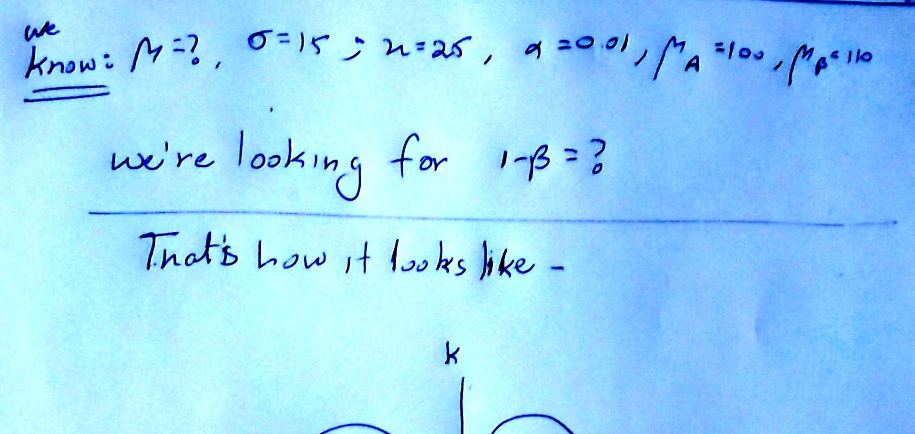 we
know: μ=?, σ=15; n=25, α=0.01, μA=100, μB=110
we're looking for 1-β=?
That's how it looks like -
k